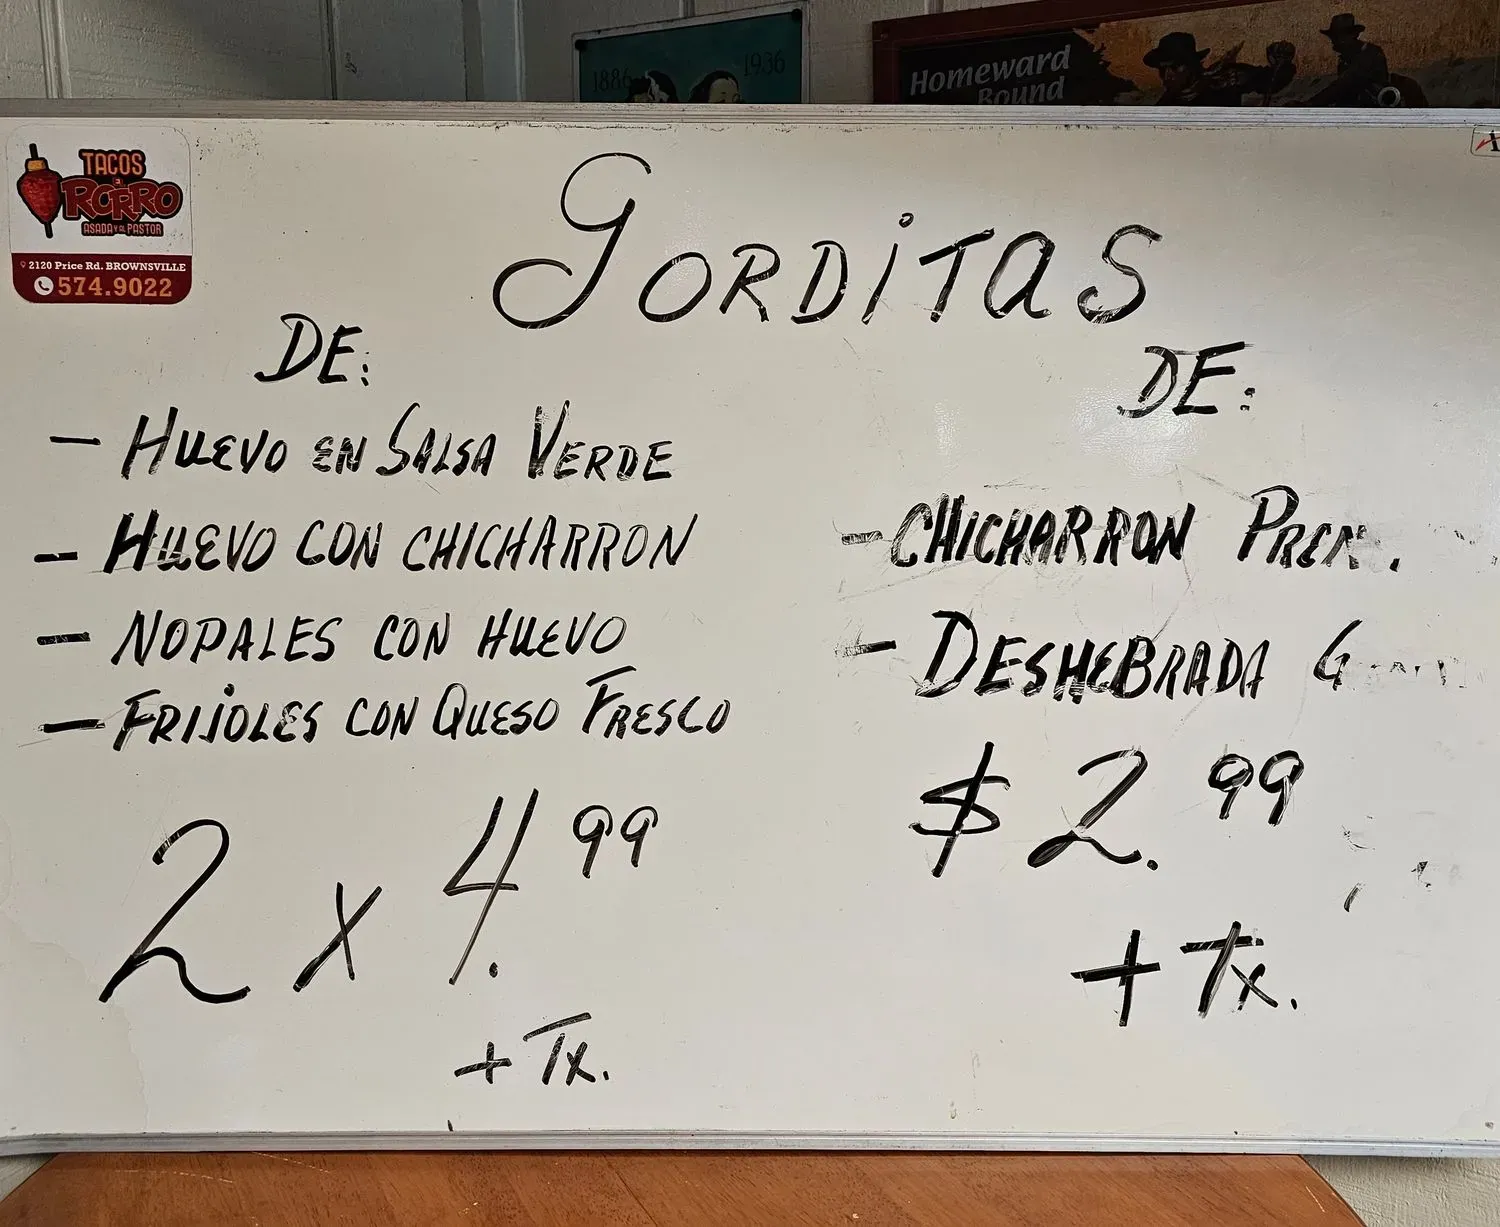 1886
1936
Homeward
Bound
TACOS
RORRO
ASADA Y AL PASTOR
2120 Price Rd. BROWNSVILLE
574.9022
GORDITAS
DE:
- HUEVO EN SALSA VERDE
- HUEVO CON CHICHARRON
- NOPALES CON HUEVO
- FRIJOLES CON QUESO FRESCO
2 x 4.99
+ Tx.
DE:
- CHICHARRON PREN.
- DESHEBRADA G
$2.99
+ Tx.